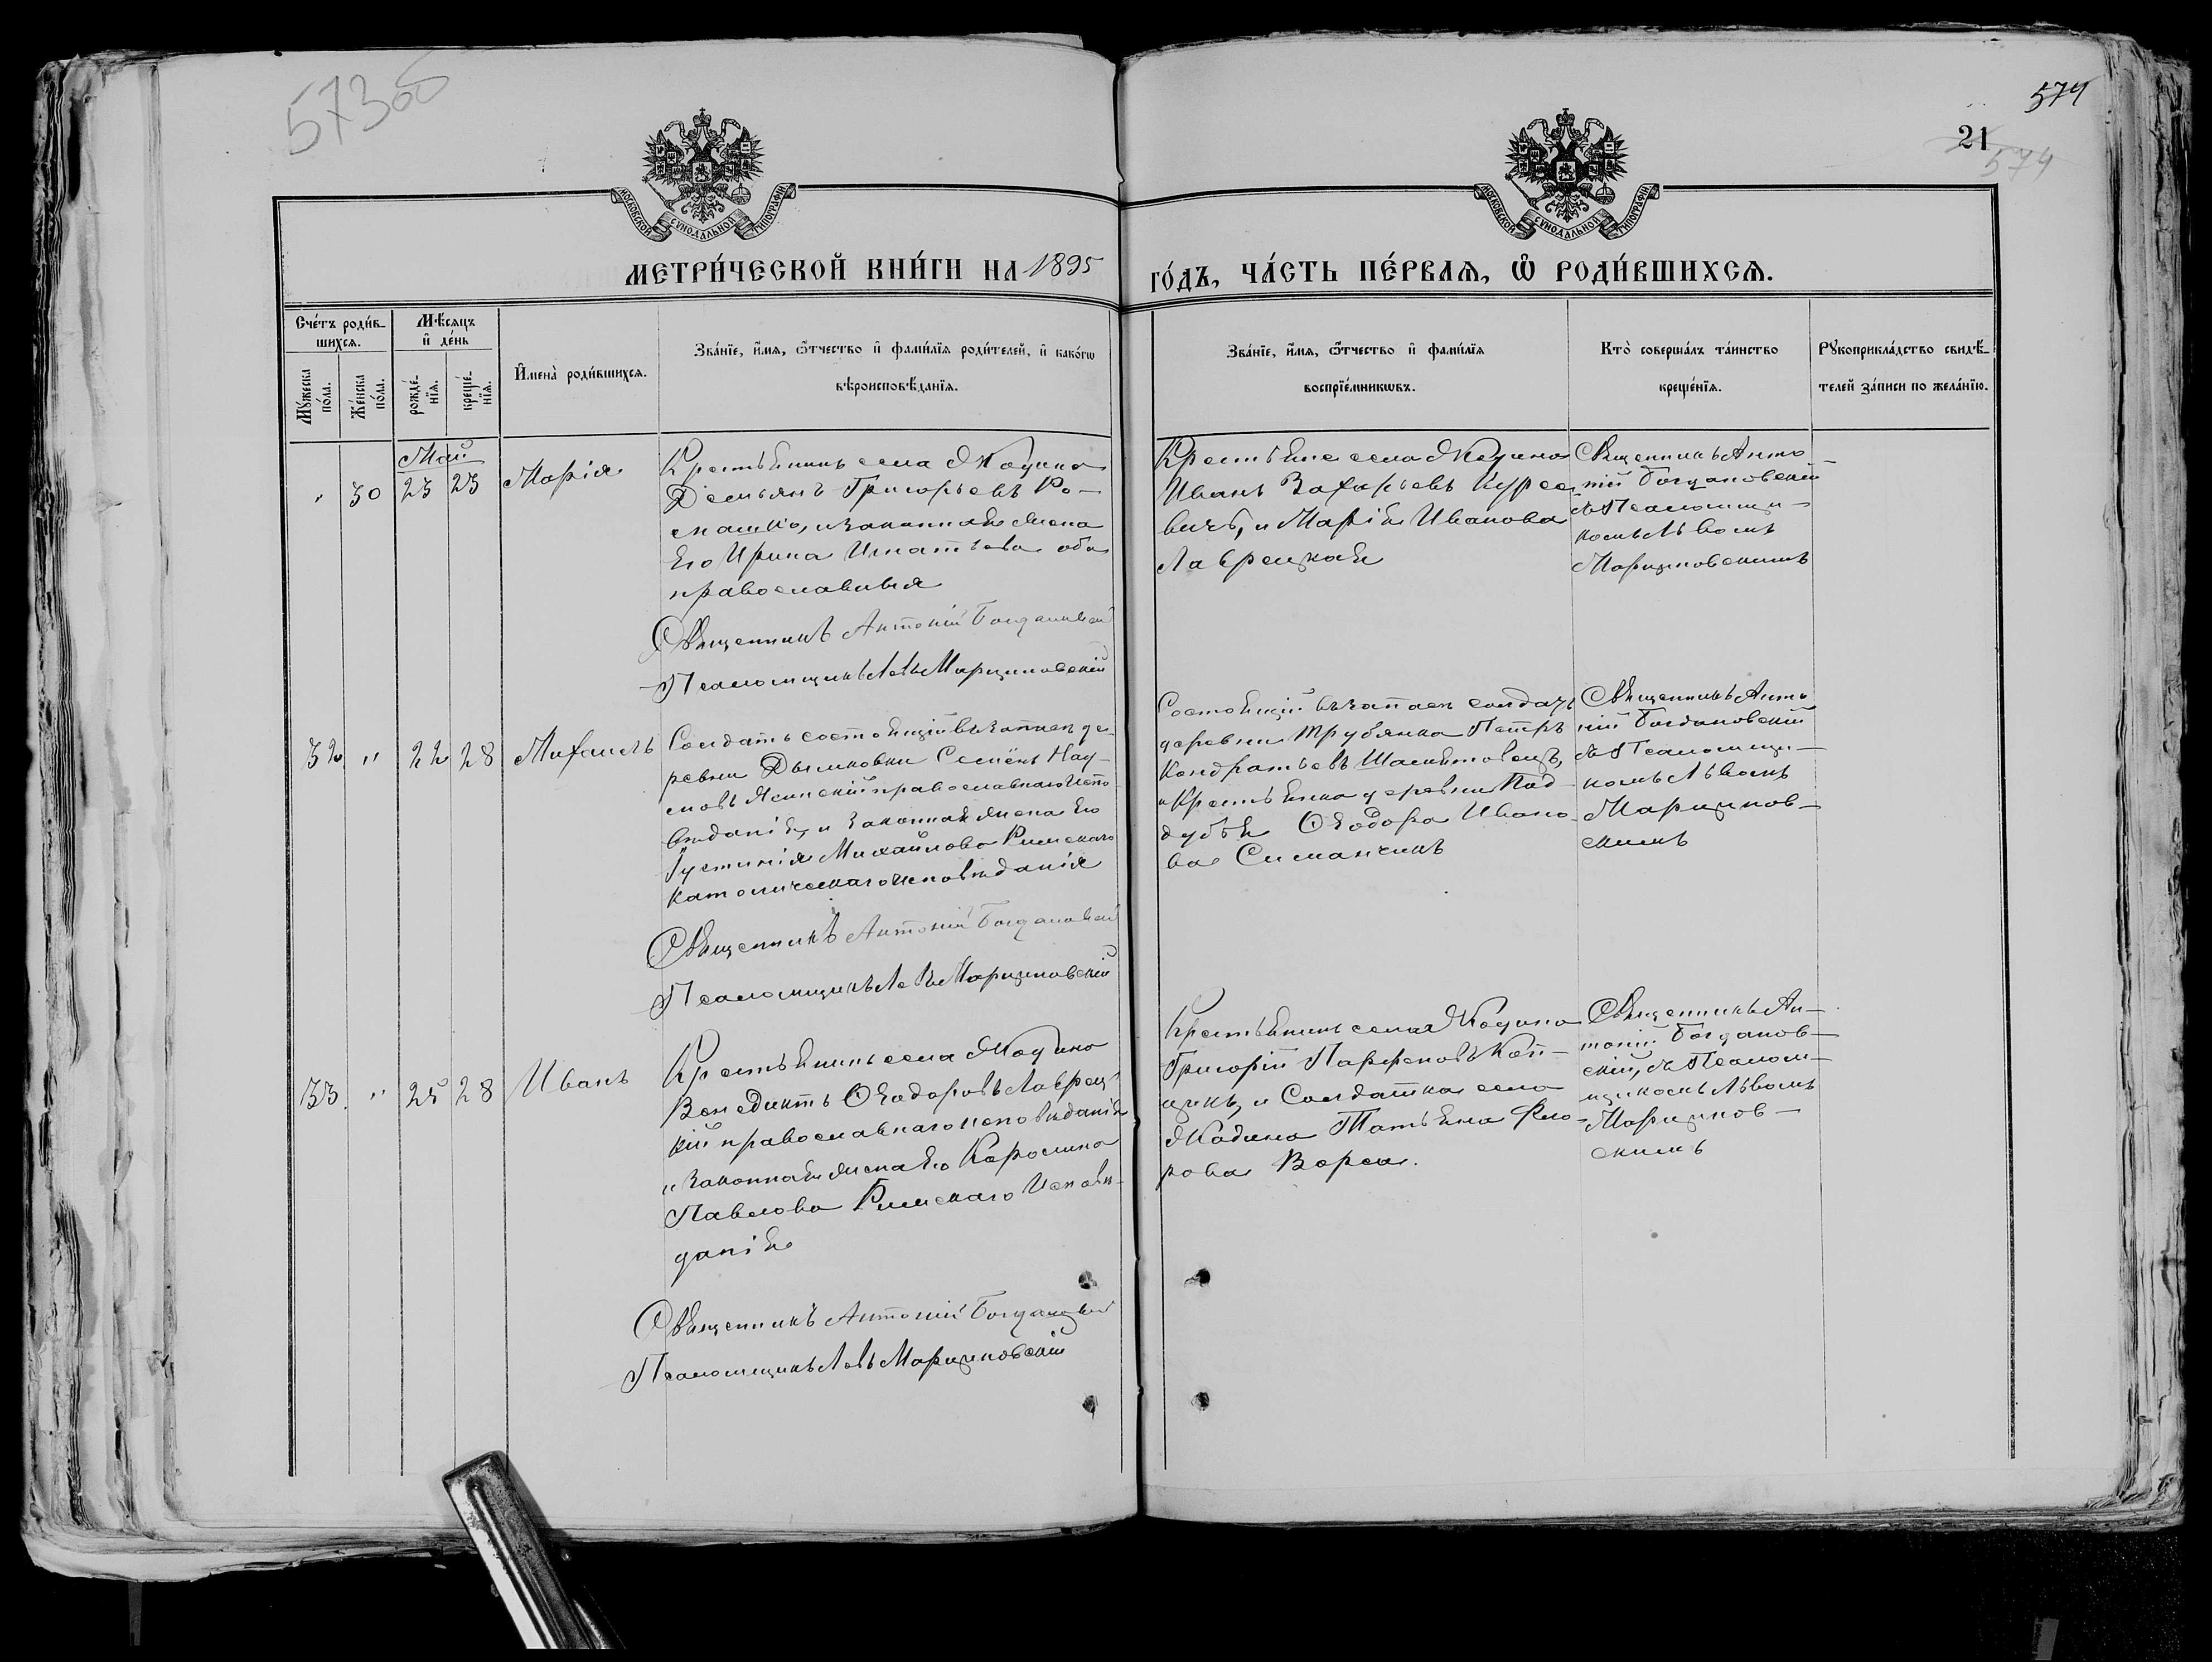 573об
574
21
574
МОСКОВСКОЙ СѴНОДАЛЬНОЙ ТИПОГРАФІИ
МОСКОВСКОЙ СѴНОДАЛЬНОЙ ТИПОГРАФІИ
МЕТРИ́ЧЕСКОЙ КНИ́ГИ НА 1895
ГО́ДЪ, ЧА́СТЬ ПЕ́РВАѦ, Ѽ РОДИ́ВШИХСѦ.
Сче́тъ роди́в-
шихсѧ.
Мꙋ́жеска
по́ла.
Же́нска
по́ла.
Мѣ́сѧцъ
и҆ де́нь
рожде́-
нїѧ.
креще́-
нїѧ.
И҆мена̀ роди́вшихсѧ.
Зва́нїе, и҆́мѧ, ѻ҆́тчество и҆ фами́лїѧ роди́телей, и҆ како́гѡ
вѣроисповѣ́данїѧ.
Зва́нїе, и҆́мѧ, ѻ҆́тчество и҆ фами́лїѧ
воспрїе́мникѡвъ.
Кто̀ соверша́лъ та́инство
креще́нїѧ.
Рꙋкоприкла́дство свидѣ́-
телей за́писи по жела́нїю.
Май
" 30 23 23 Марія
Крестьянинъ села Жодина
Демьянъ Григорьевъ Ро-
машко, и законная жена
его Ирина Игнатьева оба
православныя
Священникъ Антоній Богдановскій
Псаломщикъ Левъ Марциновскій
Крестьяне села Жодина
Иванъ Захарьевъ
вичъ, и Марія Иванова
Лаврецкая
Священникъ Анто-
ній Богдановскій
съ Псаломщи-
комъ Львомъ
Марциновскимъ
32 " 22 28 Михаилъ
Солдатъ состоящій въ запасѣ де-
ревни Дымковки Семёнъ Нау-
мовъ Ясинскій православнаго испо-
вѣданія, и законная жена его
Іустинія Михайлова Римскаго
католическаго исповѣданія
Священникъ Антоній Богдановскій
Псаломщикъ Левъ Марциновскій
Состоящій въ запасѣ солдатъ
деревни Трубянка Петръ
Кондратьевъ
и Крестьянка деревни Под-
дубья Ѳеодора Ивано-
ва Симанчикъ
Священникъ Анто
ній Богдановскій
съ Псаломщи-
комъ Львомъ
Марцинов-
скимъ
33 " 25 28 Иванъ
Крестьянинъ села Жодино
Венедиктъ Ѳеодоровъ Лаврец-
кій православнаго исповѣданія
и законная жена его Каролина
Павлова Римскаго Исповѣ-
данія
Священникъ Антоній Богдановскій
Псаломщикъ Левъ Марциновскій
Крестьянинъ села Жодина
Григорій Парфеновъ
и Солдатка села
Жодина Татьяна Фло-
рова Ворса.
Священникъ Ан-
тоній Богданов-
скій, съ Псалом-
щикомъ Львомъ
Марцинов-
скимъ